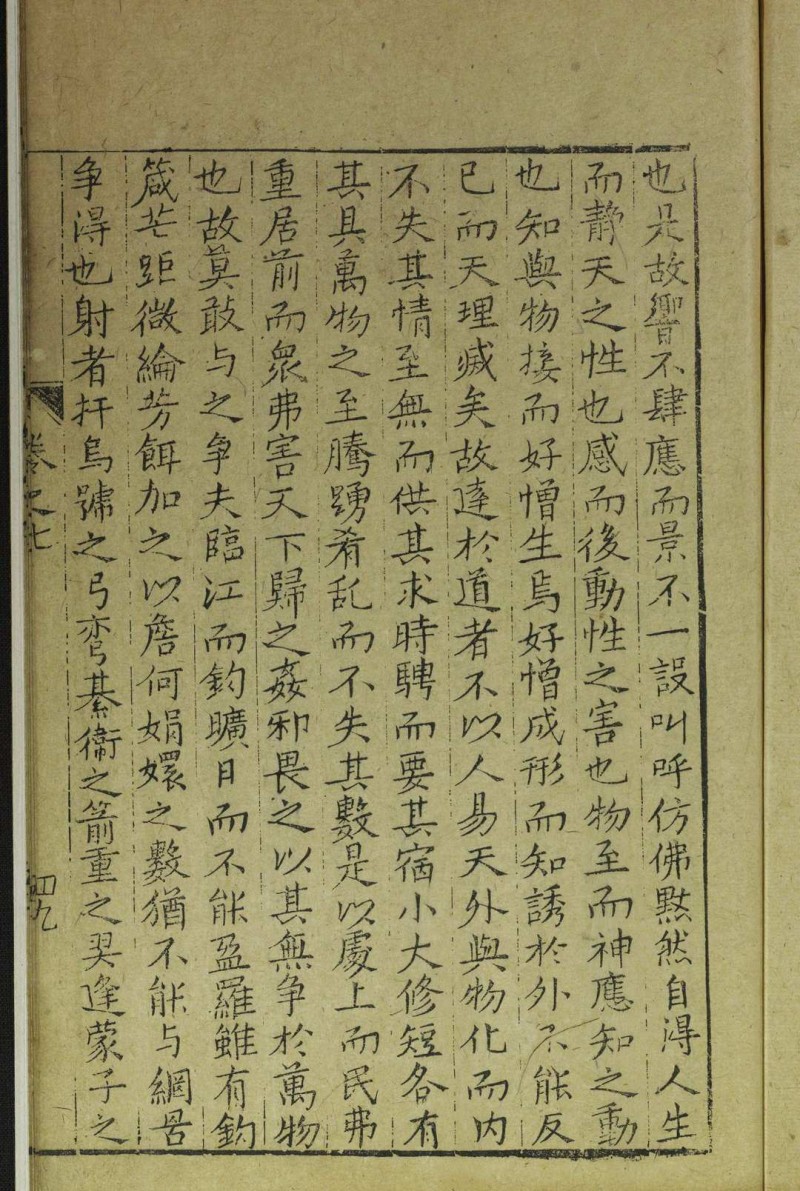 也是故響不肆應而景不一設叫呼仿佛黙然自淂人生
而静天之性也感而後動性之害也物至而神應知之動
也知與物接而好憎生焉好憎成形而知誘於外不能反
已而天理滅矣故達於道者不以人易天外與物化而内
不失其情至無而供其求時騁而要其宿小大修短各有
其具萬物之至騰踴肴乱而不失其數是以處上而民弗
重居前而衆弗害天下歸之姦邪畏之以其無争於萬物
也故莫敢与之争夫臨江而釣曠日而不能盈羅雖有釣
箴芒距微綸芳餌加之以詹何娟嬛之數猶不能与網罟
争淂也射者扜烏號之弓弯綦衞之箭重之羿逢蒙子之
卷之七
四九